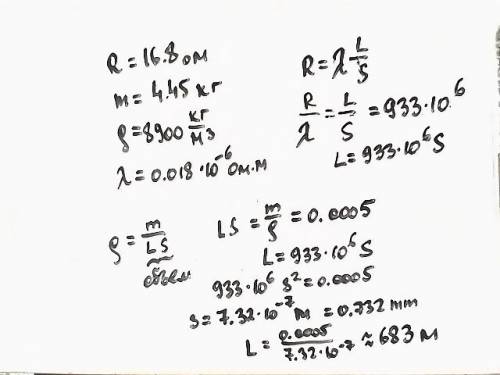 R = 16.8 ом
m = 4.45 кг
ρ = 8900 кг/м3
λ = 0.018 · 10^-6 Ом.м
R = λ L/S
R/λ = L/S = 933 · 10^6
L = 933 · 10^6 S
ρ = m/LS
объем
LS = m/ρ = 0.0005
L = 933 · 10^6 S
933 · 10^6 S^2 = 0.0005
s = 7.32 · 10^-7 м = 0.732 mm
L = 0.0005/7.32 · 10^-7 ≈ 683 м